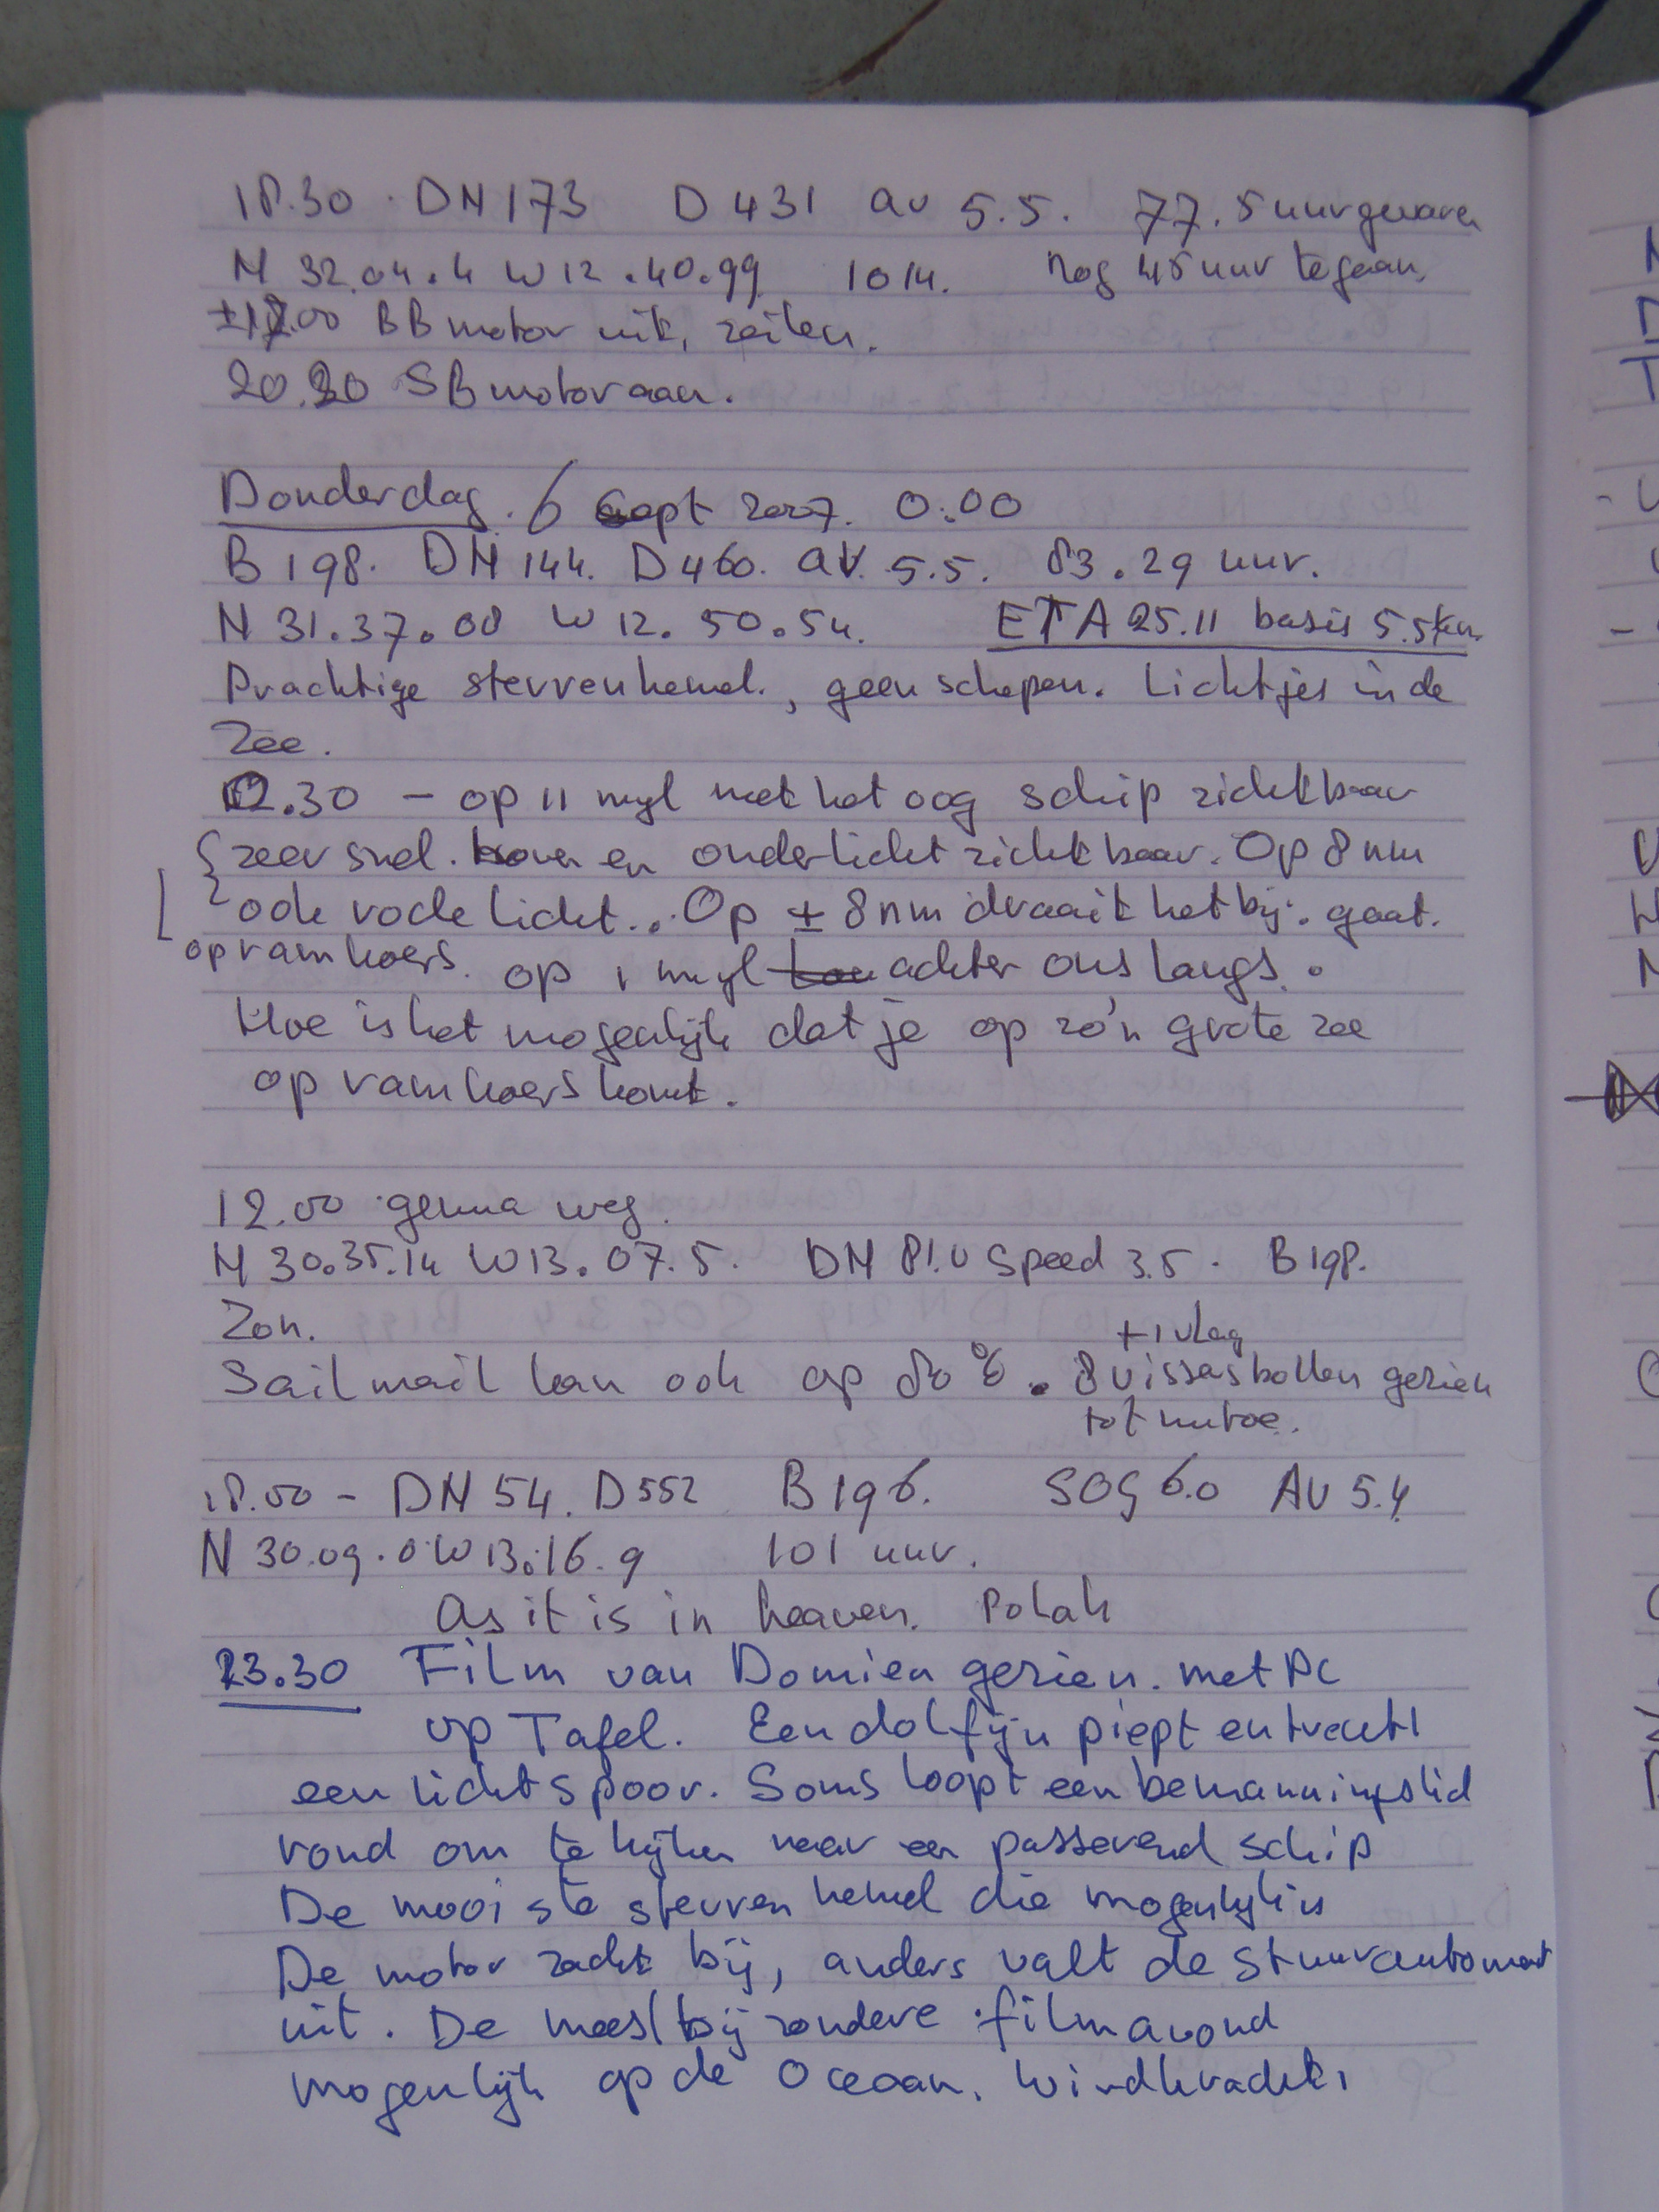 18.30 . DN 173 D 431 av 5.5. 77.5 uur gevaren
N 32.04.4 W 12.40.99 1014. nog 45 uur te gaan.
BB motor uit, zeilen.
20.20 SB motor aan.
Donderdag. 6 Sept 2007. 0:00
B 198. DN 144. D 460. aV. 5.5. 83.29 uur.
N 31.37.08 W 12.50.54. ETA 25.11 basis 5.5 km.
Prachtige sterrenhemel., geen schepen. Lichtjes in de
Zee.
02.30 – op 11 myl met het oog schip zichtbaar
zeer snel. boven en onderlicht zichtbaar. Op 8 nm
ook rode licht... Op ± 8 nm draait het bij. gaat.
op ramkoers. op 1 myl achter ons langs.
Hoe is het mogenlijk dat je op zo'n grote zee
op ramkoers komt.
12.00 genua weg.
N 30.35.14 W 13.07.5. DN 81.0 Speed 3.5. B 198.
Zon.
+ 1 vlag
Sailmail kan ook op 80%. 8 vissersbollen gezien
tot nutoe.
18.00 – DN 54. D 552 B 196. SOG 6.0 AV 5.4
N 30.09.0 W 13.16.9 101 uur.
As it is in heaven. Polak
23.30 Film van Domien gezien. met PC
op Tafel. Een dolfijn piept en trekt
een lichtspoor. Soms loopt een bemanningslid
rond om te kijken naar een passerend schip
De mooiste sterrenhemel die mogenlijk is
De motor zacht bij, anders valt de stuurautomaat
uit. De meest bijzondere filmavond
mogenlijk op de Oceaan. Windkracht 1